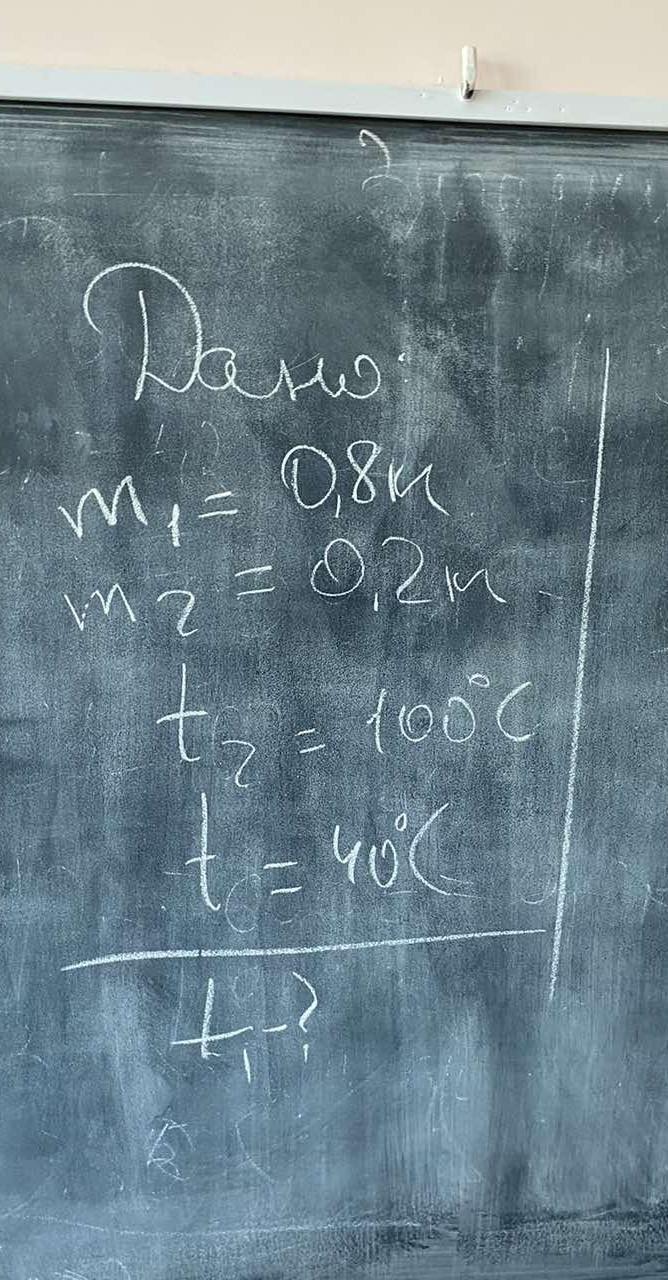 Дано:
m₁ = 0,8кг
m₂ = 0,2кг
t₂ = 100°C
t = 40°C
t₁ - ?